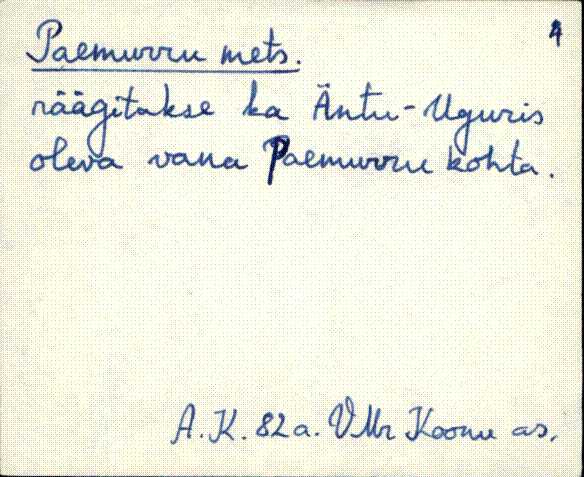 4
Paemurru mets.
räägitakse ka Äntu-Uguris
oleva vana Paemurru kohta.
A.K. 82a. VMr Koonu as.